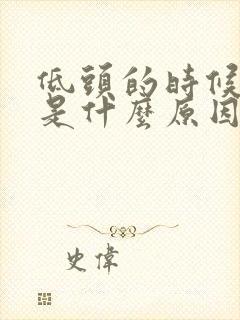 低頭的時候
是什麼原因
史偉